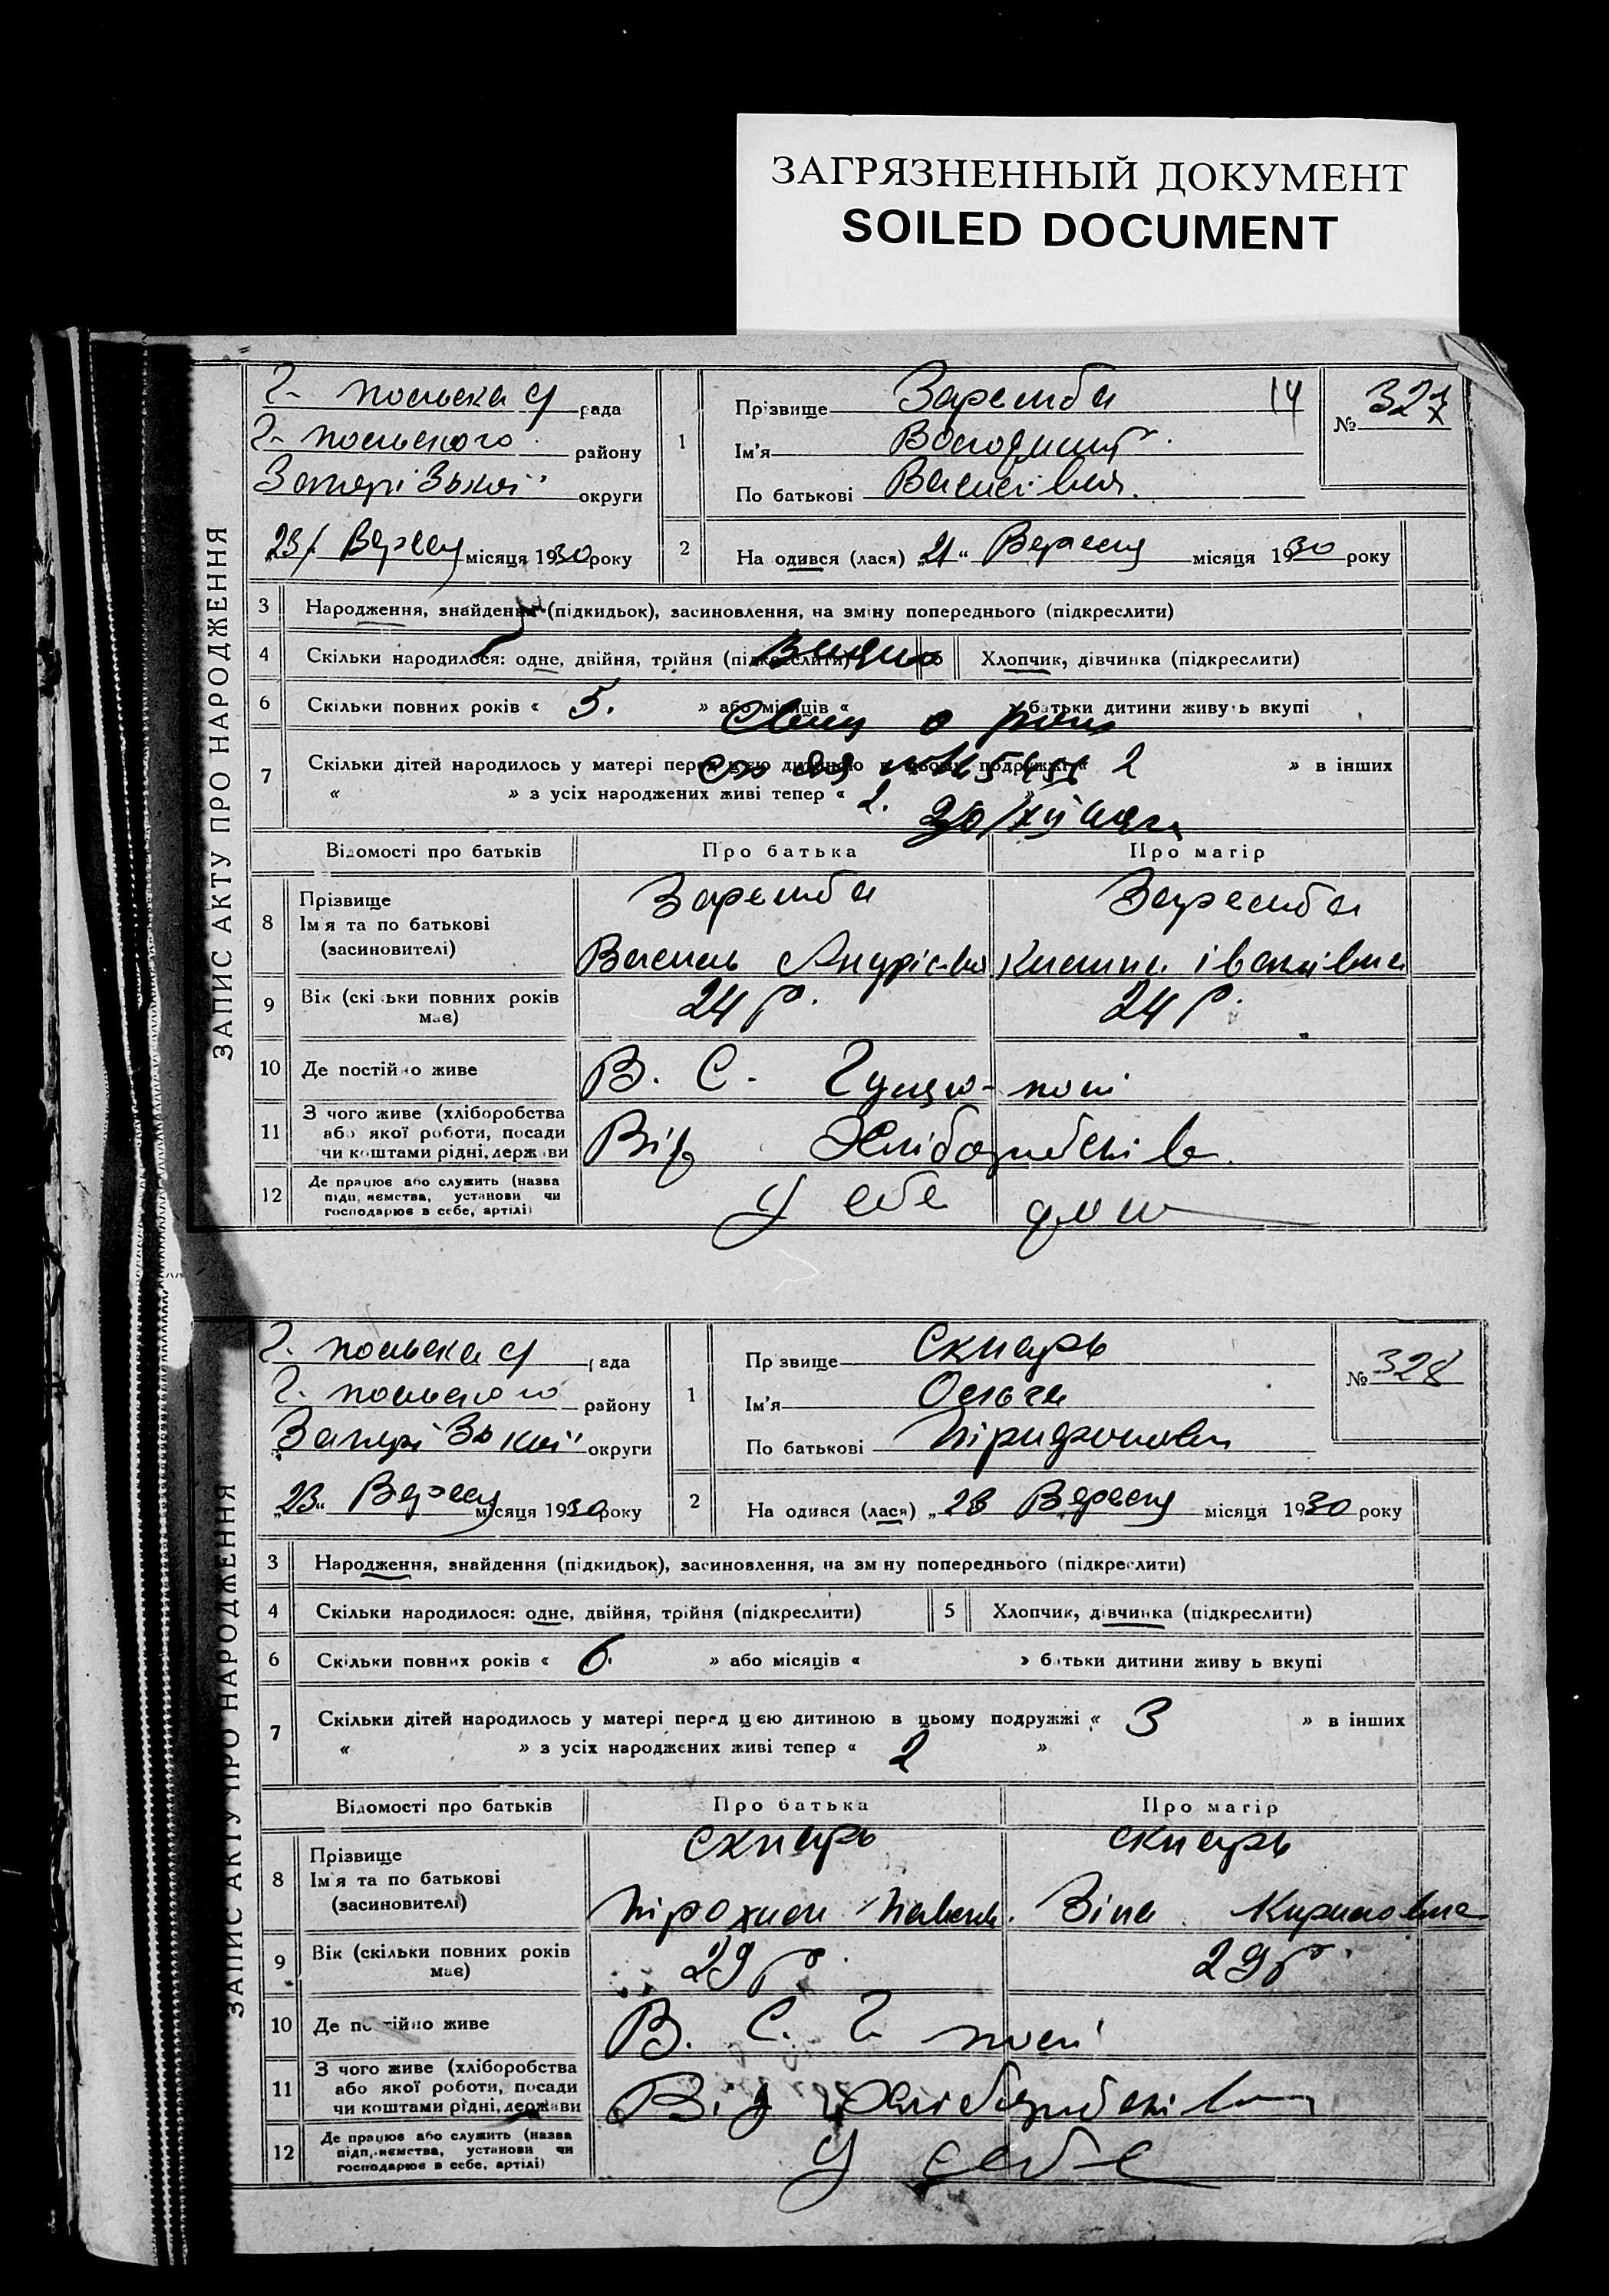 ЗАГРЯЗНЕННЫЙ ДОКУМЕНТ
SOILED DOCUMENT
ЗАПИС АКТУ ПРО НАРОДЖЕННЯ
Г- польська с/ рада
Г- польского району
Запорізької округи
„23/ Вересня місяця 1930 року
1
Прізвище Заремба 14
Ім'я Володимир
По батькові Васильівич.
№ 327
2 На одився (лася) „21“ Вересня місяця 1930 року
3 Народження, знайдення (підкидьок), засиновлення, на зміну попереднього (підкреслити)
4 Скільки народилося: одне, двійня, трійня (підкреслити) Хлопчик, дівчинка (підкреслити)
Видано
6 Скільки повних років « 5. » або місяців « батьки дитини живуть вкупі
7 Скільки дітей народилось у матері перед цією дитиною в цьому подружжі « 2 » в інших
« » з усіх народжених живі тепер « 2. »
Відомості про батьків Про батька Про матір
8 Прізвище
Ім'я та по батькові
(засиновителі)
Заремба Заремба
Василь Андрієв. Івановна
9 Вік (скільки повних років має) 24 р. 24 р.
10 Де постійно живе В. С. Гуляй-полі
11 З чого живе (хліборобства
або якої роботи, посади
чи коштами рідні, держави
Від Хліборобськів
12 Де працює або служить (назва
підприємства, установи чи
господарює в себе, артілі)
У себе дома
ЗАПИС АКТУ ПРО НАРОДЖЕННЯ
Г. польська с/ рада
Г. польского району
Запорізької округи
„23“ Вересня місяця 1930 року
1
Прізвище Скнарь
Ім'я Ольга
По батькові
№ 328
2 На одився (лася) „23 Вересня місяця 1930 року
3 Народження, знайдення (підкидьок), засиновлення, на зміну попереднього (підкреслити)
4 Скільки народилося: одне, двійня, трійня (підкреслити) 5 Хлопчик, дівчинка (підкреслити)
6 Скільки повних років « 6. » або місяців « » батьки дитини живуть вкупі
7 Скільки дітей народилось у матері перед цією дитиною в цьому подружжі « 3 » в інших
« » з усіх народжених живі тепер « 2 »
Відомості про батьків Про батька Про матір
8 Прізвище
Ім'я та по батькові
(засиновителі)
Скнарь Скнарь
Павлов. Зіна Кириловна
9 Вік (скільки повних років має) 29 р. 29 р.
10 Де постійно живе В. С. Г. полі
11 З чого живе (хліборобства
або якої роботи, посади
чи коштами рідні, держави
Від Хліборобськів
12 Де працює або служить (назва
підприємства, установи чи
господарює в себе, артілі)
У себе